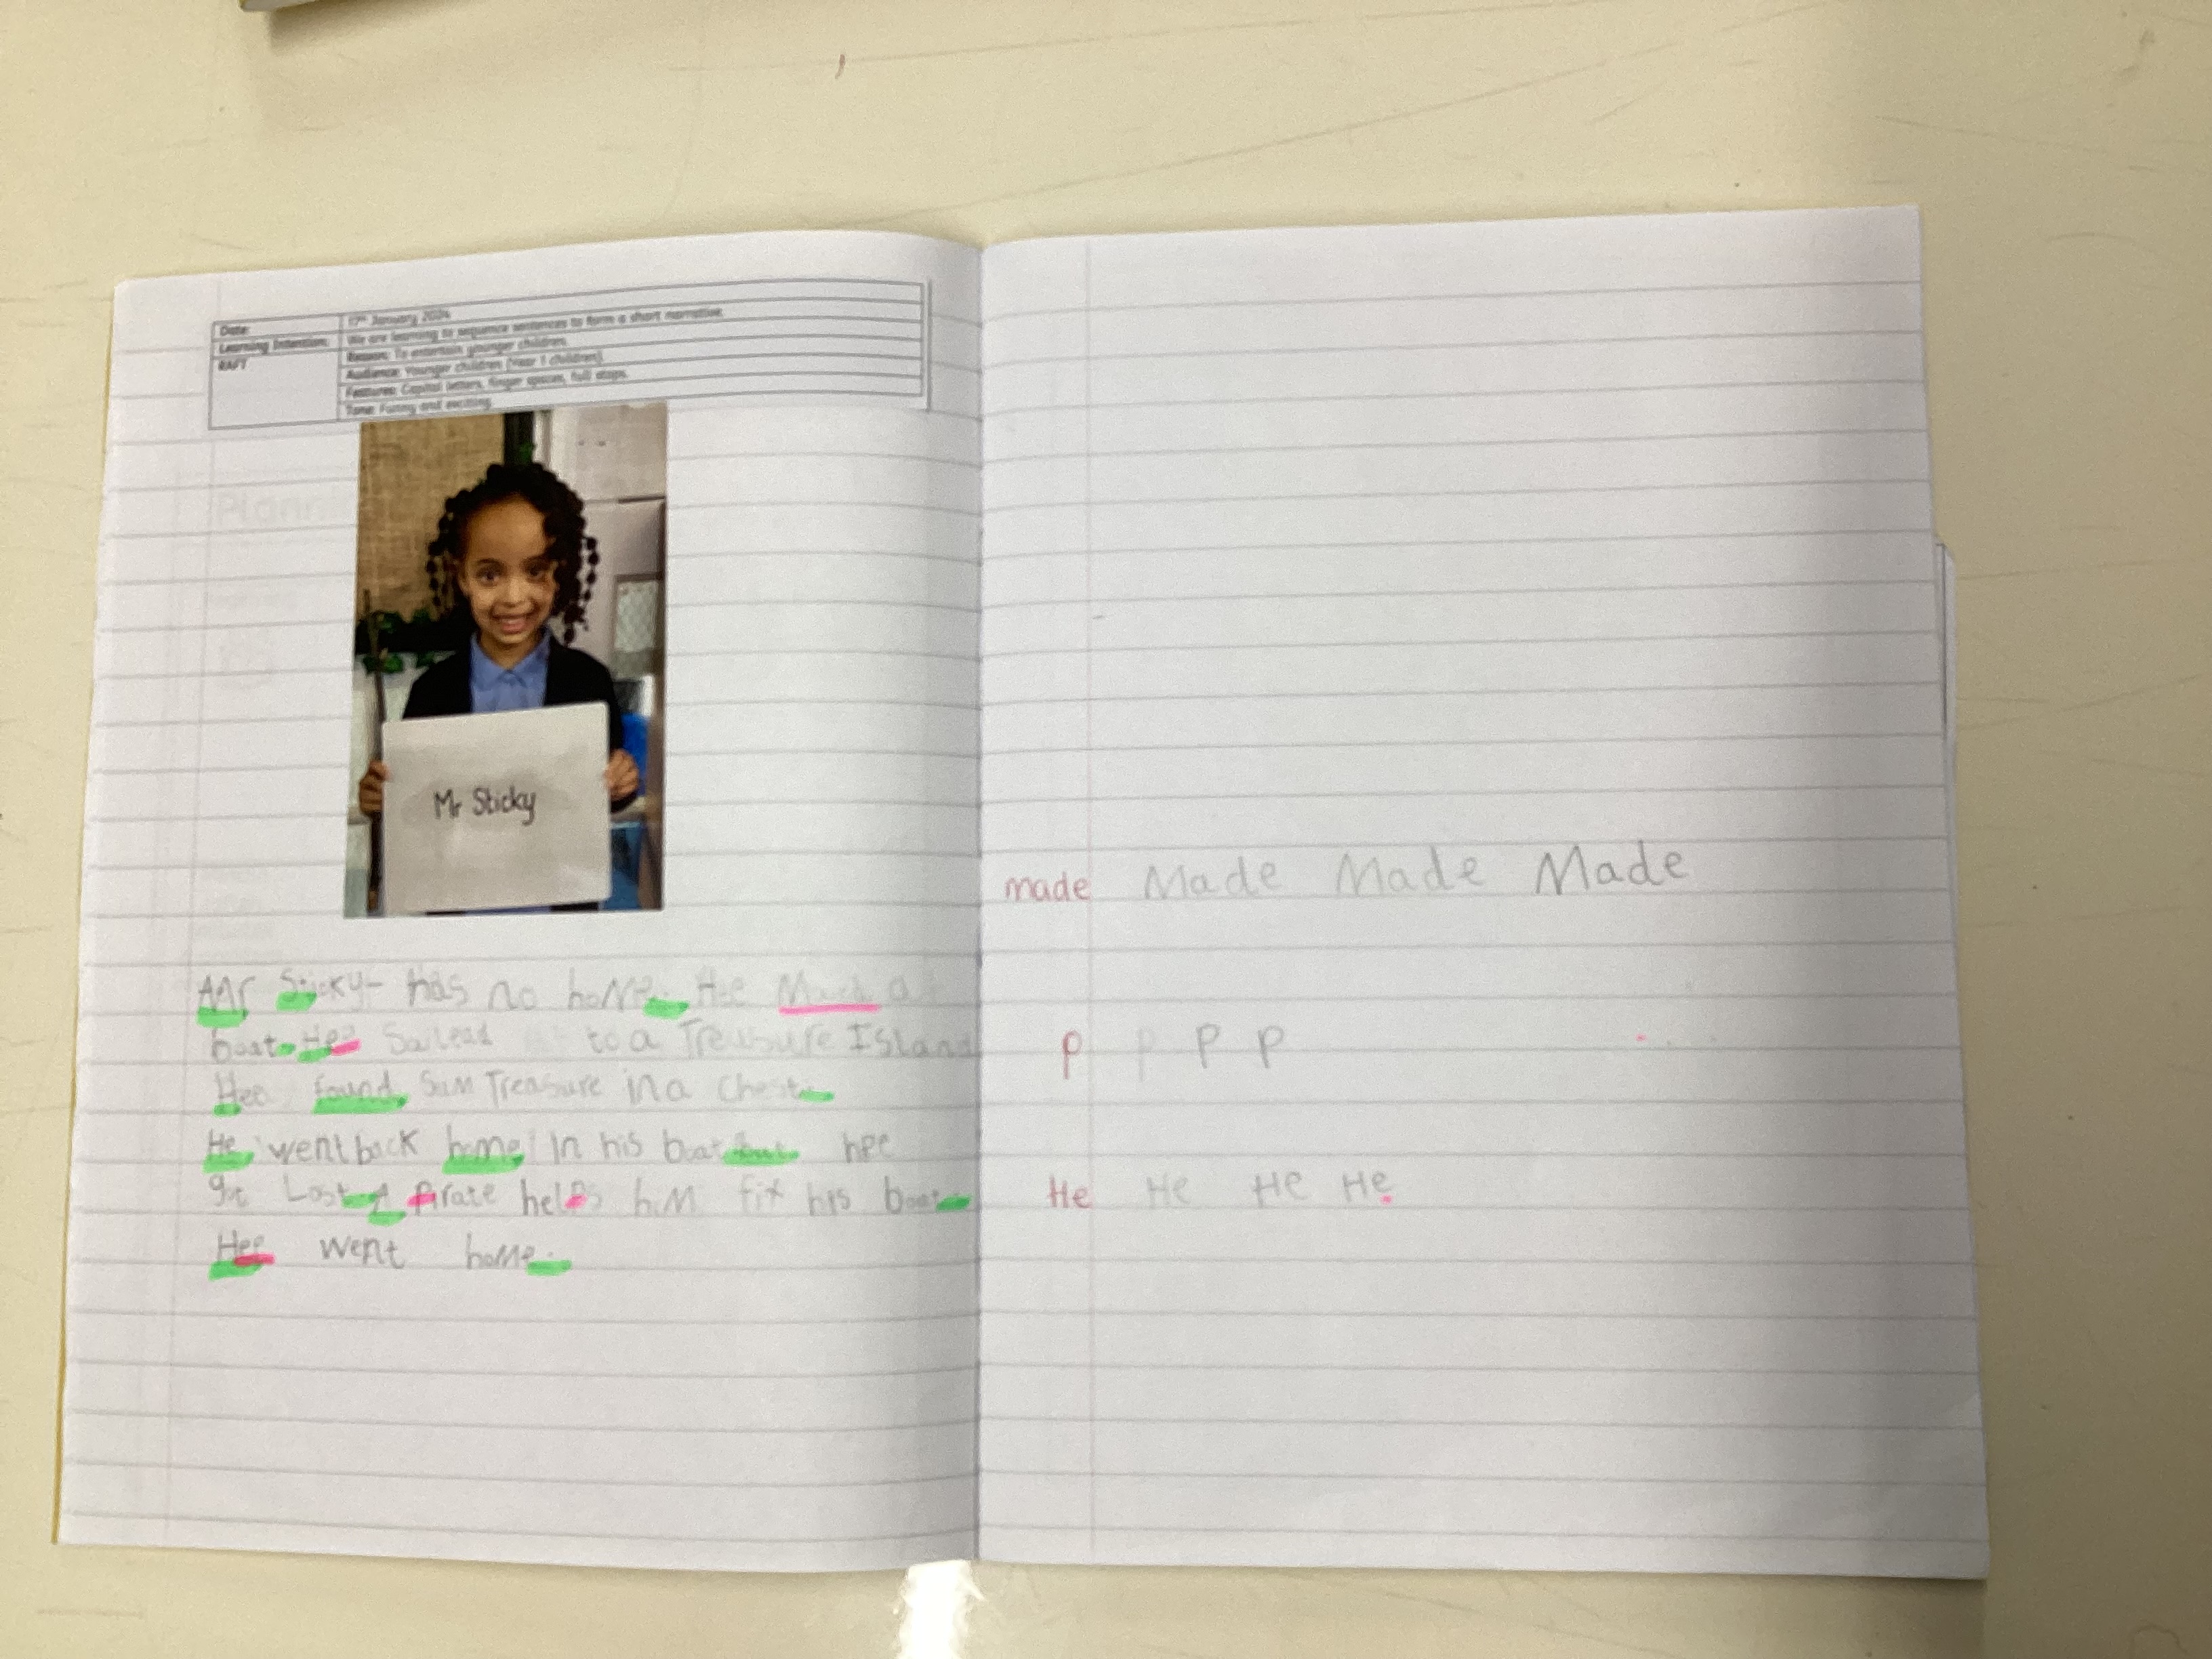 Date: 17th January 2024
Learning Intention: We are learning to sequence sentences to form a short narrative.
RAFT Reason: To entertain younger children.
Audience: Younger children (Year 1 children).
Features: Capital letters, finger spaces, full stops.
Tone: Funny and exciting
Mr Sticky
Mr Sticky has no home. Hee a
boat. Hee Sailead to a Treasure Island
Hee found Sum Treasure in a Chest.
He went back home in his boat but hee
got Lost. A Pirate helps him fix his boat.
Hee went home.
made Made Made Made
p p p p
He He He He